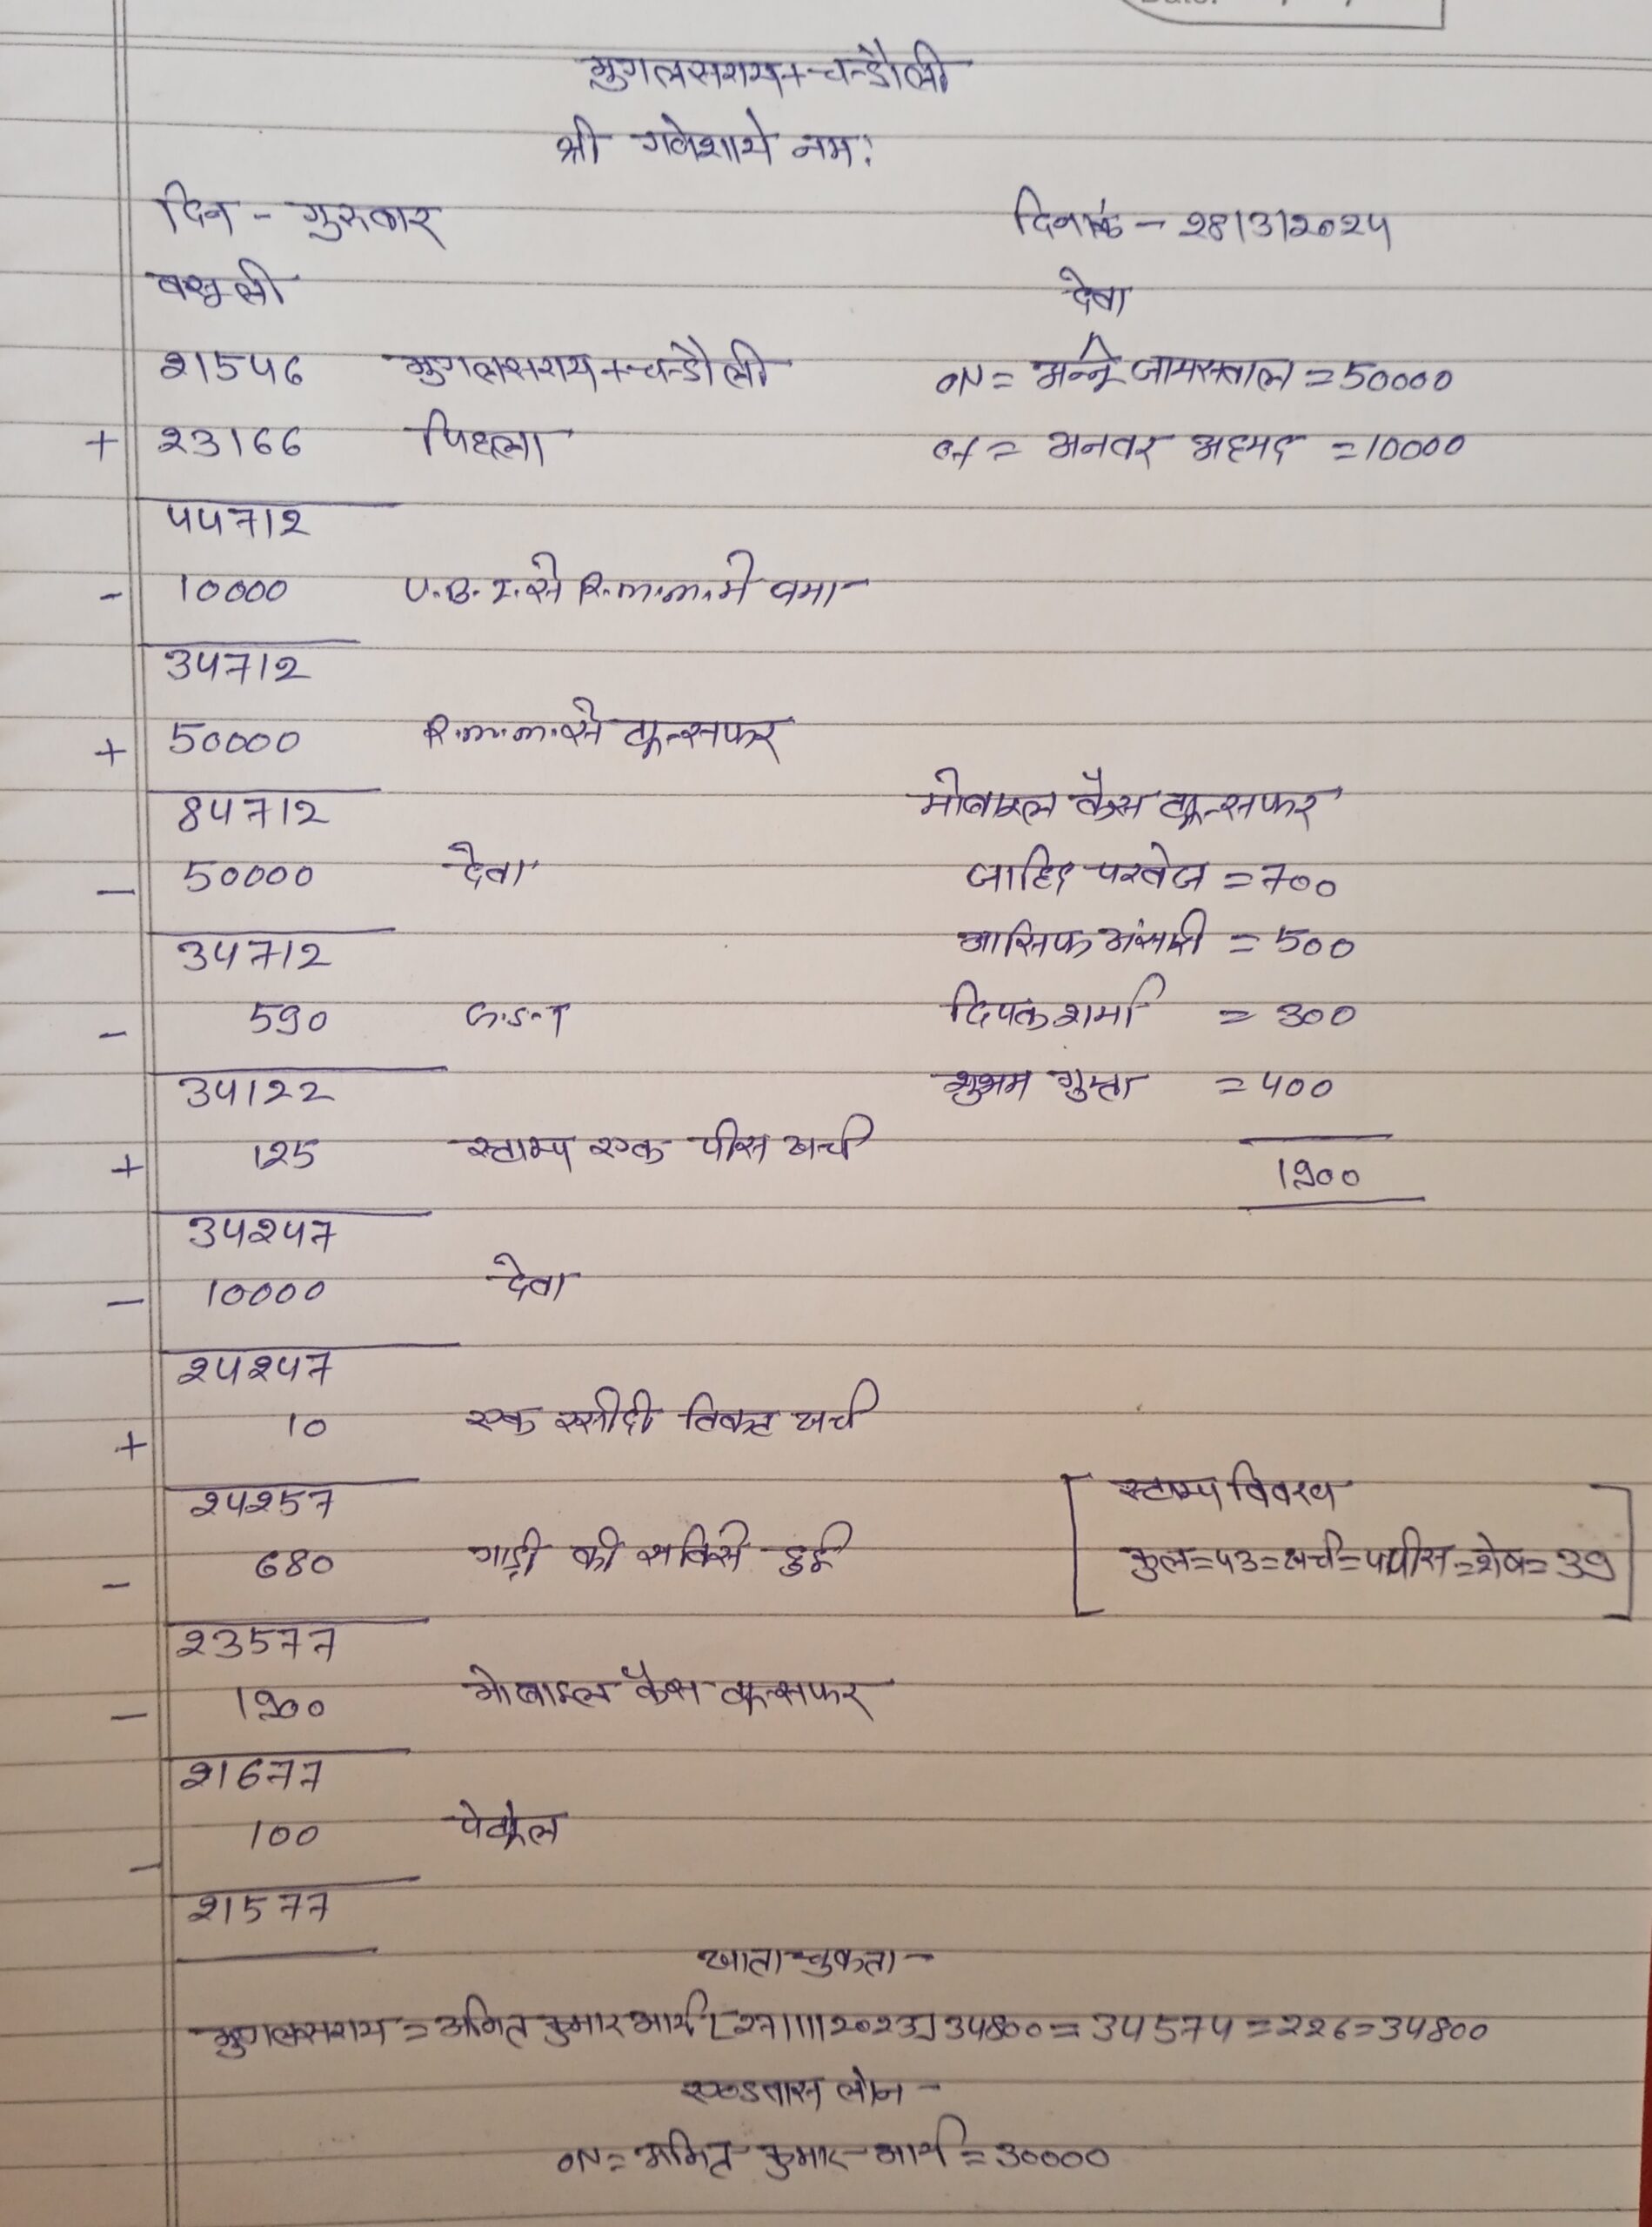 मुगलसराय + चन्डौली
श्री गणेशाये नम:
दिन - गुरुवार
दिनांक - 28|3|2024
वसूली
देवा
21546 मुगलसराय + चन्डौली
ON = मन्ने जायसवाल = 50000
+ 23166 पिछला
of = अनवर अहमद = 10000
44712
- 10000 U.B.I. से R.m.m. मे जमा
34712
+ 50000 R.m.m. से ट्रान्सफर
84712
मोबाइल कैस ट्रान्सफर
- 50000 देवा
जाहिद परवेज = 700
34712
आसिफ अंसारी = 500
- 590 G.S.T
दिपक शर्मा = 300
34122
शुभम गुप्ता = 400
+ 125 स्टाम्प एक पीस खर्च
1900
34247
- 10000 देवा
24247
+ 10 एक रसीदी टिकट खर्च
24257
स्टाम्प विवरण
- 680 गाड़ी की सर्विस हुई
[कुल = 43 = खर्च = 4 पीस = शेष = 39]
23577
- 1900 मोबाइल कैस ट्रान्सफर
21677
- 100 पेट्रोल
21577
खाता चुकता -
मुगलसराय = अमित कुमार आर्य [27|11|2023] 34800 = 34574 = 226 = 34800
एडवास लोन -
ON = अमित कुमार आर्य = 30000